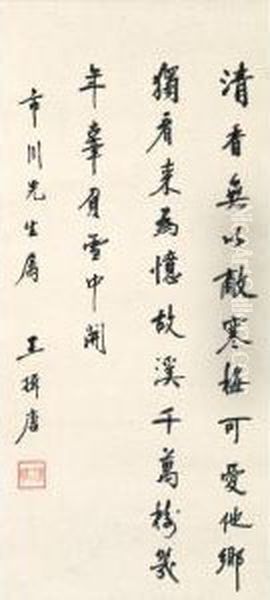 清香無以敵寒梅可愛他鄉
獨看來爲憶故溪千萬樹幾
年辜負雪中開
市川先生屬 王揖唐